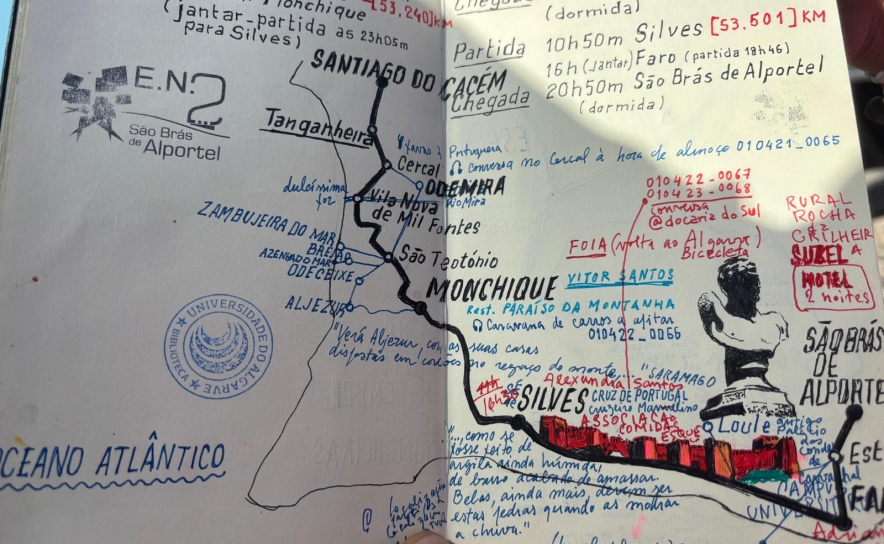 Monchique [53.240]KM
(jantar-partida as 23h05m
para Silves)
E.N.2
São Brás
de Alportel
Chegada
(dormida)
Partida 10h50m Silves [53.501] KM
16h (jantar) Faro (partida 18h46)
Chegada 20h50m São Brás de Alportel
(dormida)
SANTIAGO DO CACÉM
Tanganheira
Cercal
ODEMIRA
dulcíssima
foz
Vila Nova
de Mil Fontes
Portuguesa
conversa no Cercal à hora de almoço 010421_0065
ZAMBUJEIRA DO MAR
AZENHA DO MAR
ODECEIXE
ALJEZUR
São Teotónio
MONCHIQUE
010422-0067
010423-0068
conversa
@docaria do Sul
FOIA (volta ao Algarve)
Bicicleta
VITOR SANTOS
Rest. PARAÍSO DA MONTANHA
Caravana de carros a apitar
010422_0066
RURAL
ROCHA
da
HOTEL
2 noites
UNIVERSIDADE DO ALGARVE
BIBLIOTECA
"Verá Aljezur, com as suas casas
dispostas em cordões no regaço do monte..." SARAMAGO
Alexandra Santos
SILVES
CRUZ DE PORTUGAL
Cruzeiro Manuelino
ASSOCIAÇÃO
COMIDAS
Loulé
SÃO BRÁS
DE
ALPORTE
Est
OCEANO ATLÂNTICO
"...como se
fosse feito de
argila ainda húmida,
de barro acabado de amassar.
Belas, ainda mais, devem ser
estas pedras quando as molhar
a chuva."
antigo
Palácio
dos
de
Adrian